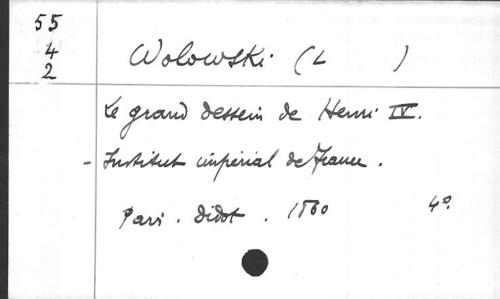 55
4
2
Wolowski (L )
Le grand dessein de Henri IV.
- Institut impérial de France.
Paris. Didot. 1860 4º.